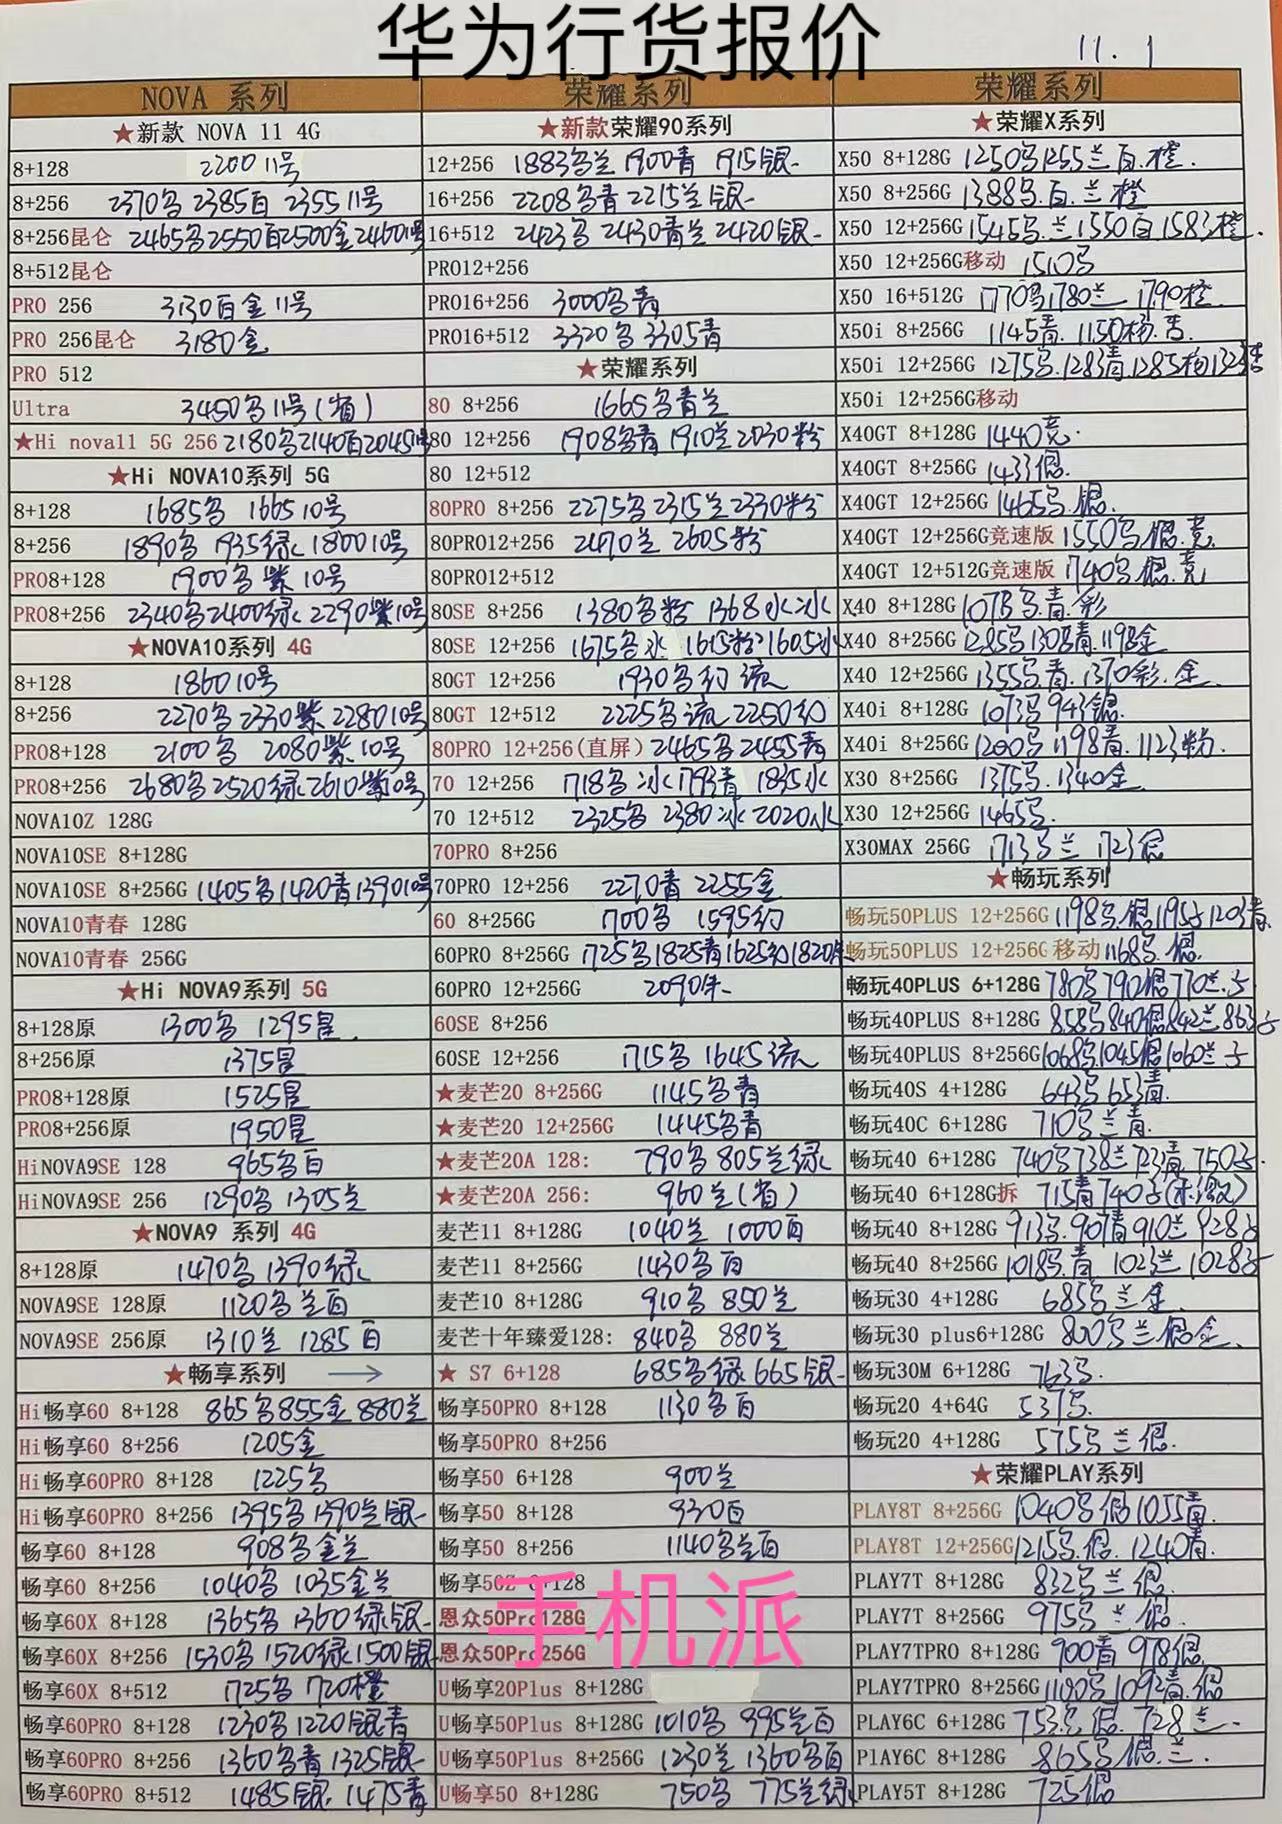 华为行货报价
11.1
NOVA 系列
★新款 NOVA 11 4G
8+128 2200 11号
8+256 2370多 2385白 2355 11号
8+256昆仑 2465多 2550白 2500金 2460 11号
8+512昆仑
PRO 256 3130白金 11号
PRO 256昆仑 3180金
PRO 512
Ultra 3450多 11号(省)
★Hi nova11 5G 256 2180多 2140白 2045
★Hi NOVA10系列 5G
8+128 1685多 1665 10号
8+256 1890多 1935绿 1800 10号
PRO8+128 1900多紫 10号
PRO8+256 2340多 2400绿 2290紫 10号
★NOVA10系列 4G
8+128 1860 10号
8+256 2270多 2330紫 2280 10号
PRO8+128 2100多 2080紫 10号
PRO8+256 2680多 2520绿 2610紫 10号
NOVA10Z 128G
NOVA10SE 8+128G
NOVA10SE 8+256G 1405多 1420青 1390 10号
NOVA10青春 128G
NOVA10青春 256G
★Hi NOVA9系列 5G
8+128原 1300多 1295星
8+256原 1375星
PRO8+128原 1525星
PRO8+256原 1950星
HiNOVA9SE 128 965多白
HiNOVA9SE 256 1290多 1305兰
★NOVA9 系列 4G
8+128原 1470多 1390绿
NOVA9SE 128原 1120多兰白
NOVA9SE 256原 1310兰 1285白
★畅享系列 →
Hi畅享60 8+128 865多 855金 880兰
Hi畅享60 8+256 1205金
Hi畅享60PRO 8+128 1225多
Hi畅享60PRO 8+256 1395多 1390兰银
畅享60 8+128 908多金兰
畅享60 8+256 1040多 1035金兰
畅享60X 8+128 1365多 1360绿银
畅享60X 8+256 1530多 1520绿 1500银
畅享60X 8+512 1725多 1720橙
畅享60PRO 8+128 1230多 1220银青
畅享60PRO 8+256 1360多青 1325银
畅享60PRO 8+512 1485银 1475青
荣耀系列
★新款荣耀90系列
12+256 1883多兰 1900青 1915银
16+256 2208多青 2215兰银
16+512 2423多 2430青兰 2420银
PRO12+256
PRO16+256 3000多青
PRO16+512 3320多 3305青
★荣耀系列
80 8+256 1665多青兰
80 12+256 1908多青 1910兰 2030粉
80 12+512
80PRO 8+256 2275多 2315兰 2330粉
80PRO12+256 2470兰 2605粉
80PRO12+512
80SE 8+256 1380多粉 1368水冰
80SE 12+256 1675多冰 1615粉 1605水
80GT 12+256 1930多幻流
80GT 12+512 2225多流 2250幻
80PRO 12+256(直屏) 2465多 2455青
70 12+256 1718多冰 1793青 1835水
70 12+512 2325多 2380冰 2020水
70PRO 8+256
70PRO 12+256 2270青 2255金
60 8+256G 1700多 1595幻
60PRO 8+256G 1725多 1825青 1625幻 1820
60PRO 12+256G 2090
60SE 8+256
60SE 12+256 1715多 1645流
★麦芒20 8+256G 1145多青
★麦芒20 12+256G 1445多青
★麦芒20A 128: 790多 805兰绿
★麦芒20A 256: 960兰(省)
麦芒11 8+128G 1040兰 1000白
麦芒11 8+256G 1430多白
麦芒10 8+128G 910多 850兰
麦芒十年臻爱128: 840多 880兰
★ S7 6+128 685多绿 665银
畅享50PRO 8+128 1130多白
畅享50PRO 8+256
畅享50 6+128 900兰
畅享50 8+128 930白
畅享50 8+256 1140多兰白
畅享50Z 6+128
恩众50Pro128G
恩众50Pro256G
U畅享20Plus 8+128G
U畅享50Plus 8+128G 1010多 995兰白
U畅享50Plus 8+256G 1230兰 1360多白
U畅享50 8+128G 750多 775兰绿
手机派
荣耀系列
★荣耀X系列
X50 8+128G 1250多 1255兰白.橙.
X50 8+256G 1388多.白.兰橙
X50 12+256G 1545多.兰 1550白 1583橙.
X50 12+256G移动 1510多
X50 16+512G 1770多 1780兰 1790橙.
X50i 8+256G 1145青. 1150杨.杏
X50i 12+256G 1275多. 1283青. 1285杨
X50i 12+256G移动
X40GT 8+128G 1440竞.
X40GT 8+256G 1433银.
X40GT 12+256G 1465多.银.
X40GT 12+256G竞速版 1550多银.竞.
X40GT 12+512G竞速版 1740多.银.竞
X40 8+128G 1078多.青.彩
X40 8+256G 1285多 1308青. 1198金
X40 12+256G 1355多青. 1370彩.金.
X40i 8+128G 1073多 943银.
X40i 8+256G 1200多 1198青. 1123粉.
X30 8+256G 1375多. 1340金.
X30 12+256G 1465多.
X30MAX 256G 1713多兰 1723银
★畅玩系列
畅玩50PLUS 12+256G 1198多.银 1195 1203青.
畅玩50PLUS 12+256G 移动 1168多.银.
畅玩40PLUS 6+128G 780多 790银 770兰.
畅玩40PLUS 8+128G 858多 840银 842兰 863
畅玩40PLUS 8+256G 1068多. 1045银 1060兰
畅玩40S 4+128G 643多 653青.
畅玩40C 6+128G 710多兰青.
畅玩40 6+128G 740多 738兰 青 750
畅玩40 6+128G拆 715青 740
畅玩40 8+128G 913多. 907青 910兰 928
畅玩40 8+256G 1018多.青 1023兰 1028
畅玩30 4+128G 685多兰金.
畅玩30 plus6+128G 800多兰银金.
畅玩30M 6+128G 763多.
畅玩20 4+64G 537多.
畅玩20 4+128G 575多兰银.
★荣耀PLAY系列
PLAY8T 8+256G 1040多银 1055青.
PLAY8T 12+256G 1215多.银. 1240青.
PLAY7T 8+128G 832多兰银.
PLAY7T 8+256G 975多兰银.
PLAY7TPRO 8+128G 900青 978银.
PLAY7TPRO 8+256G 1100多 1092青.银
PLAY6C 6+128G 753多.银. 728兰.
PlAY6C 8+128G 865多银.兰.
PLAY5T 8+128G 725银